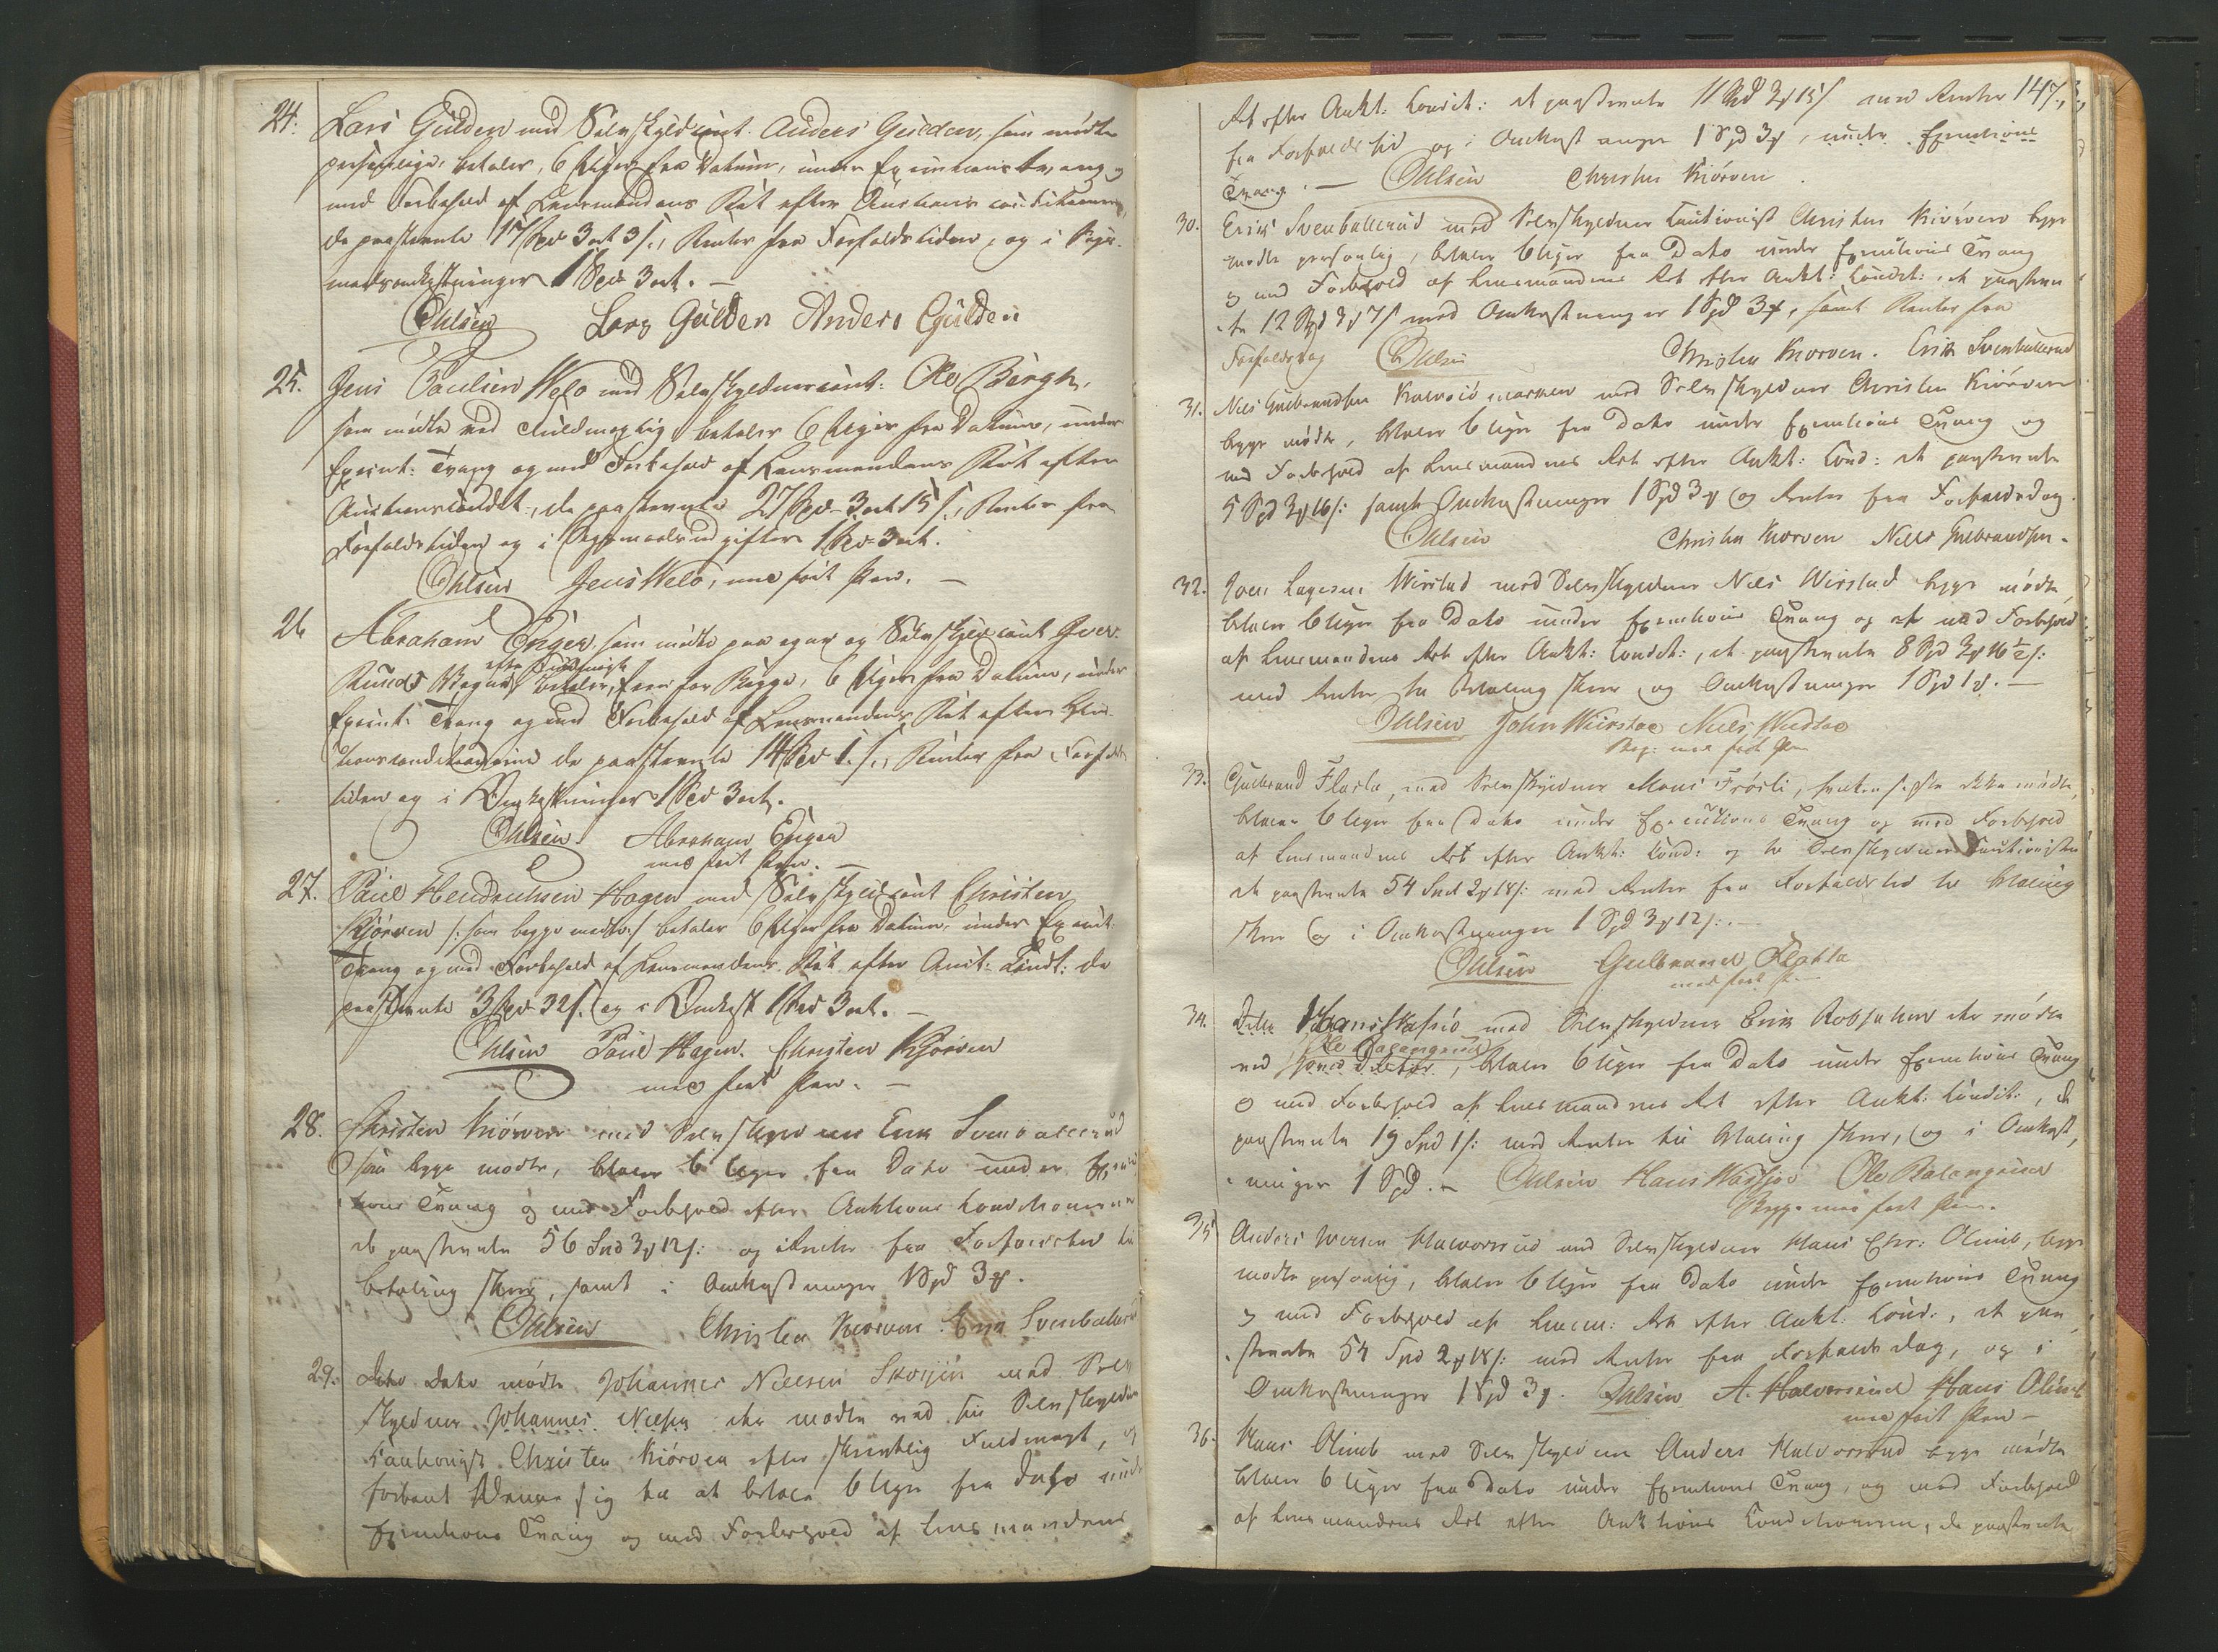 24. Lars Gulden med Selvskyldcaut. Anders Gulden, som mødte
personlige, betaler, 6 Uger fra Datum, under Executions tvang og
med Forbehold af Lensmandens Ret efter Auctions conditionerne,
de paastævnte 17 Spd 3 ort 3 s., Renter fra Forfaldstiden, og i Sags-
maalsomkostninger 1 Spd 3 ort. —
Ohlsen Lars Gulden Anders Gulden
25. Jens Paulsen Welo med Selvskyldnercaut: Ole Bergh,
som mødte ved Fuldmægtig betaler 6 Uger fra Datum, under
Execut: Tvang og med Forbehold af Lensmandens Ret efter
Auctionscondit:, de paastævnte 27 Spd 3 ort 15 s., Renter fra
Forfaldstiden og i Sagsmaalsudgifter 1 Spd 3 ort.
Ohlsen Jens Welo, med ført Pen. —
26 Abraham Enger som mødte paa egne og Selvskyldcaut
efter Fuldmagt
betaler, 6 Uger fra Datum, under
Execut: Tvang og med Forbehold af Lensmandens Ret efter
de paastævnte 14 Spd 1 s., Renter fra Forfalds
tiden og i Omkostninger 1 Spd 3 ort.
Ohlsen Abraham Enger
med ført Pen. —
27. Paul Hendrichsen Hagen med Selvskyldcaut Christen
Kjørven /: som begge mødte :/ betaler 6 Uger fra Datum, under Execut:
Tvang og med Forbehold af Lensmandens Ret efter Auct: Condt: de
paastævnte 3 Spd 32 s. og i Omkost 1 Spd 3 ort. —
Ohlsen Paul Hagen. Christen Kjørven
med ført Pen. —
28. Christen Kiørven med Selvskyldner Erik Svenballerud
som begge mødte, betaler 6 Uger fra Dato under Execu
tions Tvang og med Forbehold efter Auktions Conditionerne
de paastævnte 56 Spd 3 12 s: og Renter fra Forfaldstid til
betaling skeer, samt i Omkostninger 1 Spd 3.
Ohlsen Christen Kiørven. Erik Svenballerud
29. Dito Dato mødte Johannes Nielsen med Selv
skyldner Johannes Nielsen der mødte ved sin Selvskyldner
Cautionist Christen Kiørven efter skriftlig Fuldmagt, og
forbant sig til at betale 6 Uger fra Dato under
Executions Tvang og med Forbehold af Lensmandens
Ret efter Aukt: Condit: de paastævnte 11 Spd 3 15 s med Renter
fra Forfaldstid og i Omkostninger 1 Spd 3, under Executions
Tvang. — Ohlsen Christen Kiørven.
30. Erik Svenballerud med Selvskyldner Cautionist Christen Kiørven begge
mødte personlig, betaler 6 Uger fra Dato under Executions Tvang
og med Forbehold af Lensmandens Ret efter Aukt: Condit:, de paastævn
te 12 Spd 3 7 s med Omkostninger 1 Spd 3, samt Renter fra
Forfaldsdag Ohlsen Christen Kiørven. Erik Svenballerud
31. Niels Gulbrandsen med Selvskyldner Christen Kiørven
begge mødte, betaler 6 Uger fra Dato under Executions Tvang og
med Forbehold af Lensmandens Ret efter Aukt: Cond: de paastævnte
5 Spd 3 16 s: samt Omkostninger 1 Spd 3 og Renter fra Forfaldsdag.
Ohlsen Christen Kiørven Niels Gulbrandsen.
32. Wirstad med Selvskyldner Niels Wirstad begge mødte,
betaler 6 Uger fra Dato under Executions Tvang og med Forbehold
af Lensmandens Ret efter Aukt: Condit:, de paastævnte 8 Spd 3 16 ½ s:
med Renter til betaling skeer og Omkostninger 1 Spd 1. —
Ohlsen
med ført Pen
33. Gulbrand Flasta, med Selvskyldner Mons Frøsli, hvilken sidste ikke mødte,
betaler 6 Uger fra Dato under Executions Tvang og med Forbehold
af Lensmandens Ret efter Aukt: Cond: og til Selvskyldner Cautionisten
de paastævnte 54 Spd 2 18 s: med Renter fra Forfaldstid til betaling
skeer og i Omkostninger 1 Spd 3 12 s:.
Ohlsen Gulbrand Flatla
med ført P.
34. med Selvskyldner Erik der mødte
Ole Balangrud
ved, betaler 6 Uger fra Dato under Executions Tvang
og med Forbehold af Lensmandens Ret efter Aukt: Condit:, de
paastævnte 19 Spd 1 s: med Renter til betaling skeer, og i Omkost,
ninger 1 Spd. — Ohlsen Hans Ole Balangrud
Begge med ført Pen.
35 Anders Iversen Halvorsrud med Selvskyldner Hans Chr: Olimb, begge
mødte personlig, betaler 6 Uger fra Dato under Executions Tvang
og med Forbehold af Lensm: Ret efter Aukt: Cond:, de paa
stævnte 54 Spd 2 18 s: med Renter fra Forfalds dag, og i
Omkostninger 1 Spd 3. Ohlsen A. Halvorsrud Hans Olimb
med ført Pen —
36. Hans Olimb med Selvskyldner Anders Halvorsrud begge mødte
betaler 6 Uger fra Dato under Executions Tvang, og med Forbehold
af Lensmandens Ret efter Auktions Conditionerne, de paastævnte